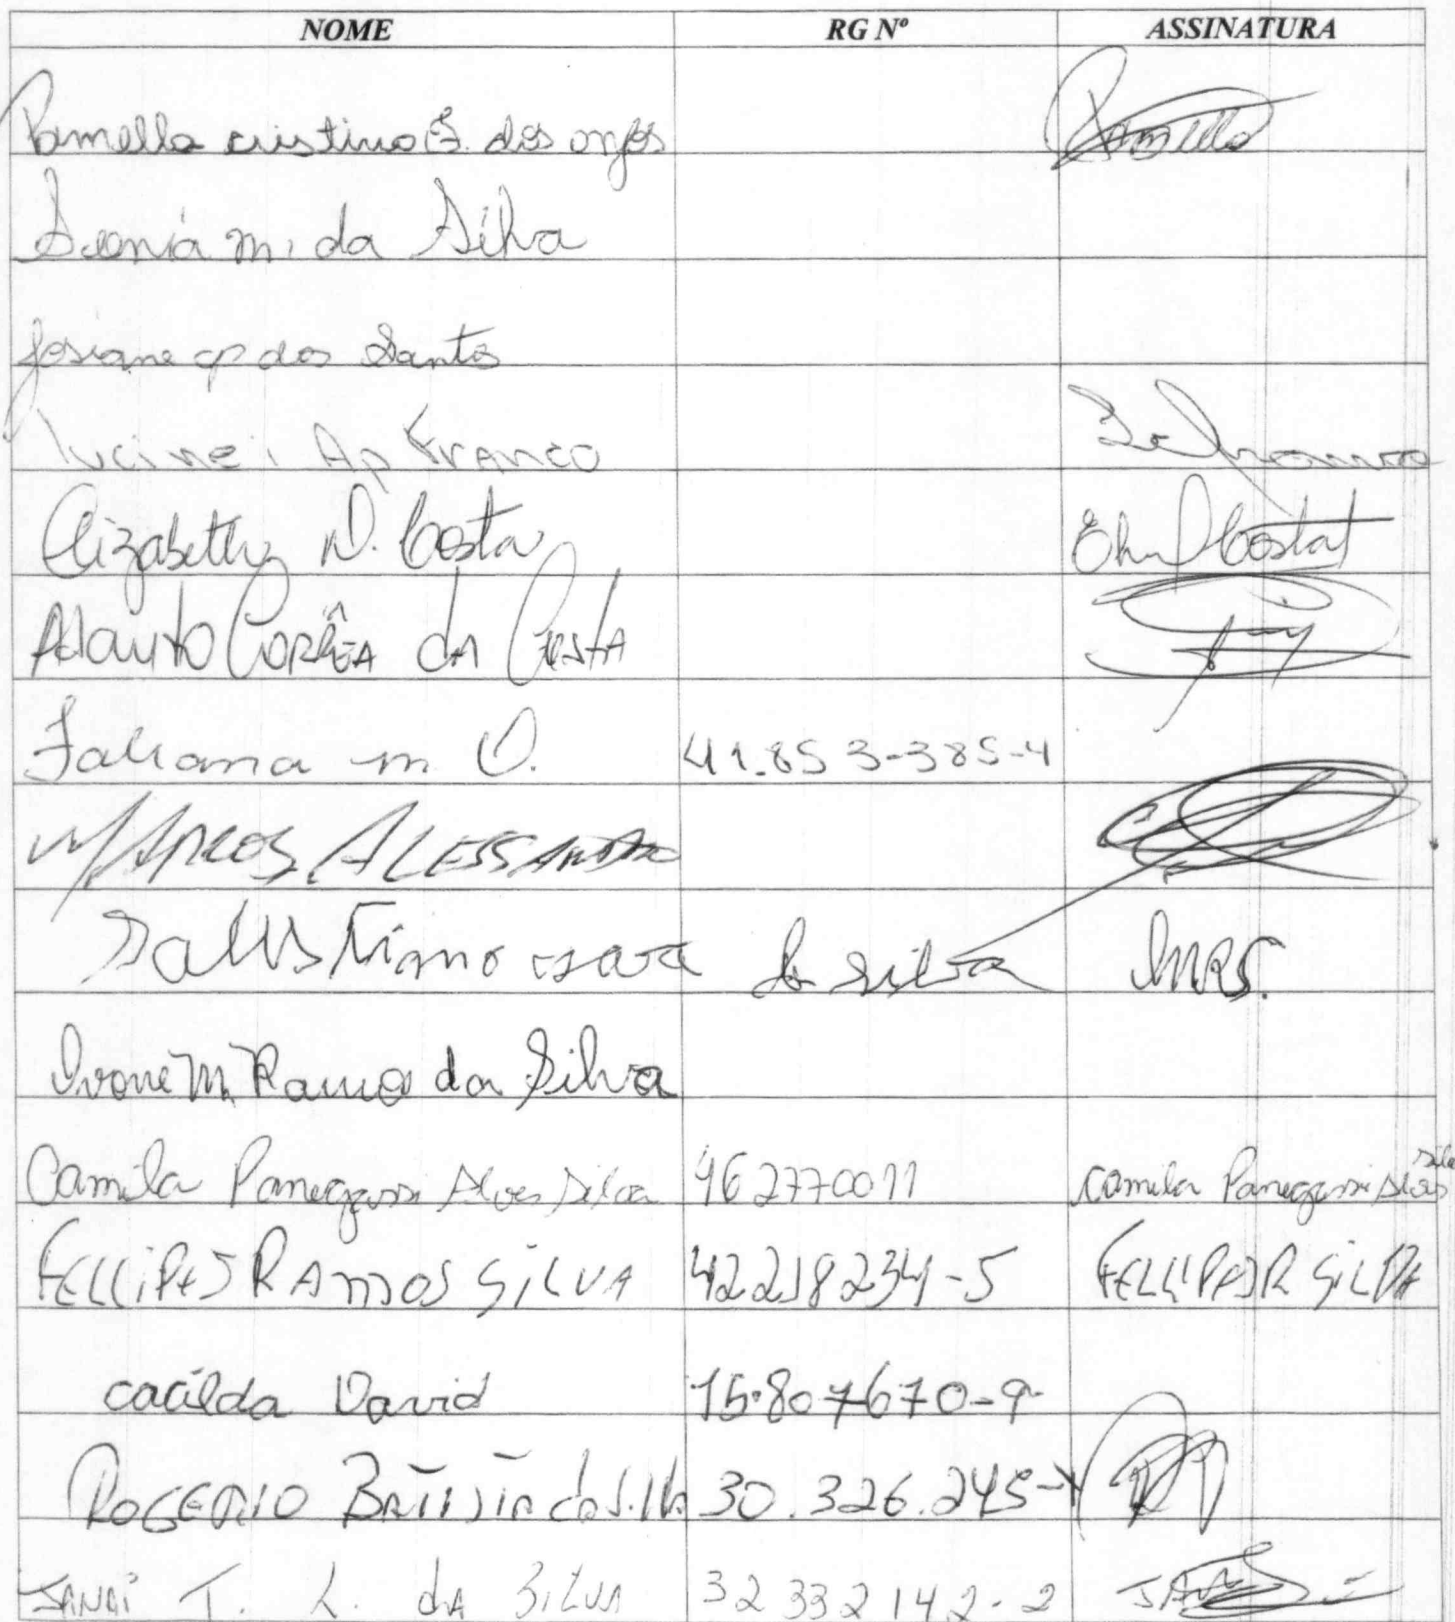 NOME RG Nº ASSINATURA
Pamella cristina F. dos anjos Pamella
Sonia m. da Silva
Josiane ap dos Santos
Lucinei Ap Franco
Elizabethy D. Costa
Adauto Corrêa da Costa
Fabiana m. O. 41.853-385-4
MARCOS ALESSANDRO
da silva MRS.
Ivone M. Ramos da Silva
Camila Panegassi Alves Silva 462770011 Camila Panegassi Alves Silva
FELLIPES RAMOS SILVA 42218234-5
cacilda David 15.807670-9
ROGERIO BATISTA da Silva 30.326.245-X
JANAI T. L. dA SILVA 32332142-2